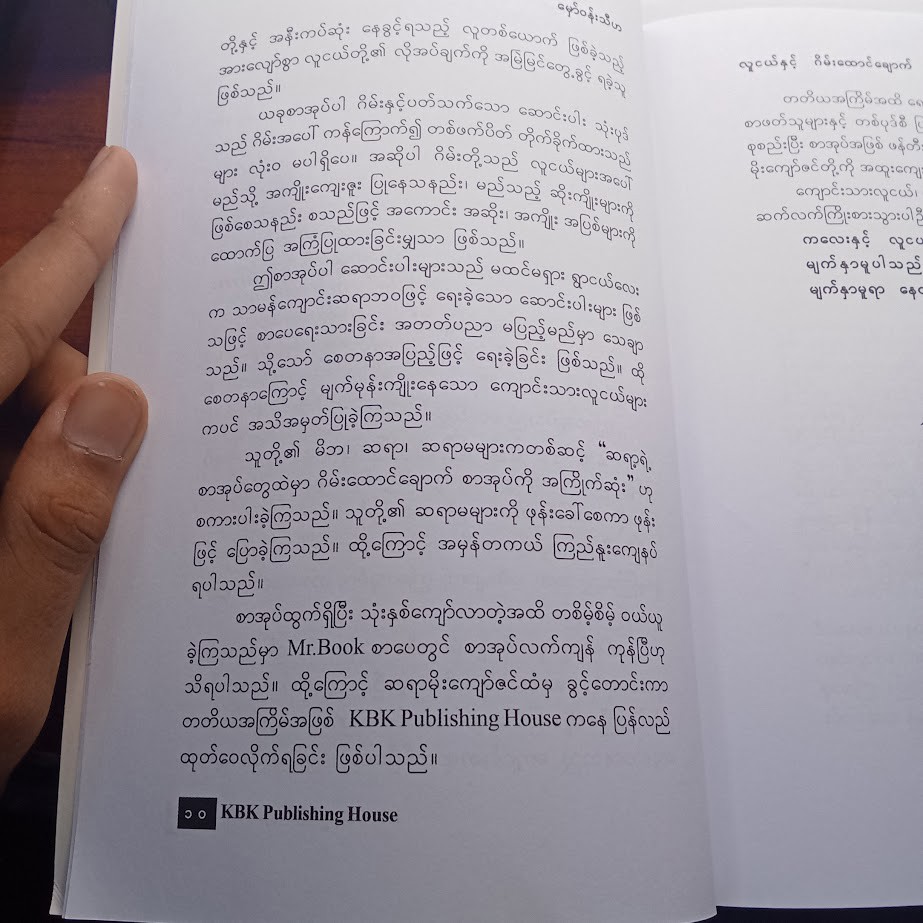 မှော်ဝန်းသီဟ
တို့နှင့် အနီးကပ်ဆုံး နေခွင့်ရသည့် လူတစ်ယောက် ဖြစ်ခဲ့သည့်
အားလျော်စွာ လူငယ်တို့၏ လိုအပ်ချက်ကို အမြဲမြင်တွေ့ခွင့် ရခဲ့သူ
ဖြစ်သည်။
ယခုစာအုပ်ပါ ဂိမ်းနှင့်ပတ်သက်သော ဆောင်းပါး သုံးပုဒ်
သည် ဂိမ်းအပေါ် ကန်ကြောက်၍ တစ်ဖက်ပိတ် တိုက်ခိုက်ထားသည်
များ လုံးဝ မပါရှိပေ။ အဆိုပါ ဂိမ်းတို့သည် လူငယ်များအပေါ်
မည်သို့ အကျိုးကျေးဇူး ပြုနေသနည်း၊ မည်သည့် ဆိုးကျိုးများကို
ဖြစ်စေသနည်း စသည်ဖြင့် အကောင်း အဆိုး၊ အကျိုး အပြစ်များကို
ထောက်ပြ အကြံပြုထားခြင်းမျှသာ ဖြစ်သည်။
ဤစာအုပ်ပါ ဆောင်းပါးများသည် မထင်မရှား ရွာငယ်လေး
က သာမန်ကျောင်းဆရာဘဝဖြင့် ရေးခဲ့သော ဆောင်းပါးများ ဖြစ်
သဖြင့် စာပေရေးသားခြင်း အတတ်ပညာ မပြည့်မည်မှာ သေချာ
သည်။ သို့သော် စေတနာအပြည့်ဖြင့် ရေးခဲ့ခြင်း ဖြစ်သည်။ ထို
စေတနာကြောင့် မျက်မုန်းကျိုးနေသော ကျောင်းသားလူငယ်များ
ကပင် အသိအမှတ်ပြုခဲ့ကြသည်။
သူတို့၏ မိဘ၊ ဆရာ၊ ဆရာမများကတစ်ဆင့် “ဆရာ့ရဲ့
စာအုပ်တွေထဲမှာ ဂိမ်းထောင်ချောက် စာအုပ်ကို အကြိုက်ဆုံး” ဟု
စကားပါးခဲ့ကြသည်။ သူတို့၏ ဆရာမများကို ဖုန်းခေါ်စေကာ ဖုန်း
ဖြင့် ပြောခဲ့ကြသည်။ ထို့ကြောင့် အမှန်တကယ် ကြည်နူးကျေနပ်
ရပါသည်။
စာအုပ်ထွက်ရှိပြီး သုံးနှစ်ကျော်လာတဲ့အထိ တစိမ့်စိမ့် ဝယ်ယူ
ခဲ့ကြသည်မှာ Mr.Book စာပေတွင် စာအုပ်လက်ကျန် ကုန်ပြီဟု
သိရပါသည်။ ထို့ကြောင့် ဆရာမိုးကျော်ဇင်ထံမှ ခွင့်တောင်းကာ
တတိယအကြိမ်အဖြစ် KBK Publishing House ကနေ ပြန်လည်
ထုတ်ဝေလိုက်ရခြင်း ဖြစ်ပါသည်။
၁၀ KBK Publishing House
လူငယ်နှင့် ဂိမ်းထောင်ချောက်
တတိယအကြိမ်အထိ
စာဖတ်သူများနှင့် တစ်ပုဒ်စီ
စုစည်းပြီး စာအုပ်အဖြစ်
မိုးကျော်ဇင်တို့ကို
ကျောင်းသားလူငယ်၊
ဆက်လက်ကြိုးစားသွားပါ
ကလေးနှင့်
မျက်နှာမူပါသည်
မျက်နှာမူရာ